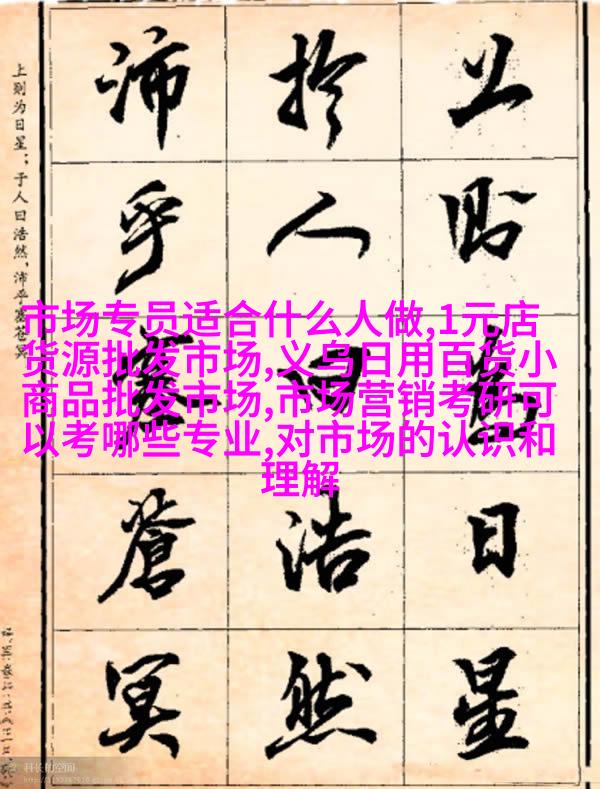 上則為日星
於人曰浩然
沛乎塞蒼冥
上则为日星；于人曰浩然，沛乎塞苍冥
市场专员适合什么人做,1元店
货源批发市场,义乌日用百货小
商品批发市场,市场营销考研可
以考哪些专业,对市场的认识和
理解
科长的空间